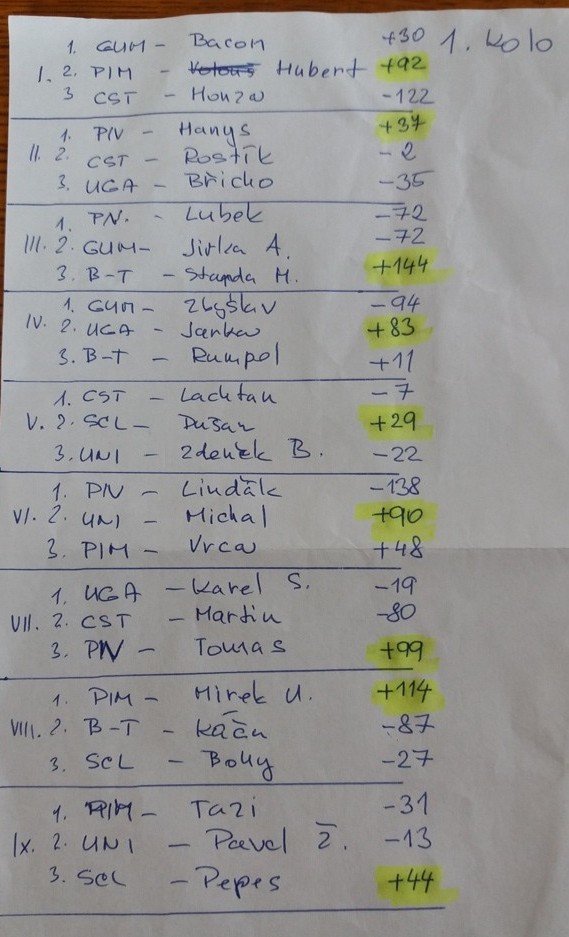 1. GUM - Bacon +30 1. kolo
I. 2. PIM - Hubert +92
3 CST - Honza -122
1. PIV - Hanys +37
II. 2. CST - Rostík -2
3. UGA - Břicho -35
1. PIV. - Lubek -72
III. 2. GUM - Jirka A. -72
3. B-T - Standa M. +144
1. GUM - Zbyškav -94
IV. 2. UGA - Janka +83
3. B-T - Rumpol +11
1. CST - Lachtan -7
V. 2. SCL - Dušan +29
3. UNI - Zdeněk B. -22
1. PIV - Linďák -138
VI. 2. UNI - Michal +90
3. PIM - Vrca +48
1. UGA - Karel S. -19
VII. 2. CST - Martin -80
3. PIV - Tomas +99
1. PIM - Mirek U. +114
VIII. 2. B-T - Káču -87
3. SCL - Bolly -27
1. PIM - Tazi -31
IX. 2. UNI - Pavel Ž. -13
3. SCL - Pepes +44